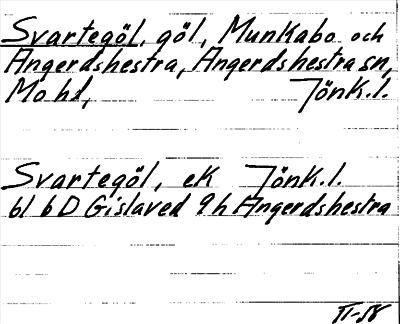 Svartegöl, göl, Munkabo och
Angerdshestra, Angerdshestra sn,
Mo hd, Jönk.l.
Svartegöl, ek Jönk.l.
bl 6D Gislaved 9h Angerdshestra
VI-58